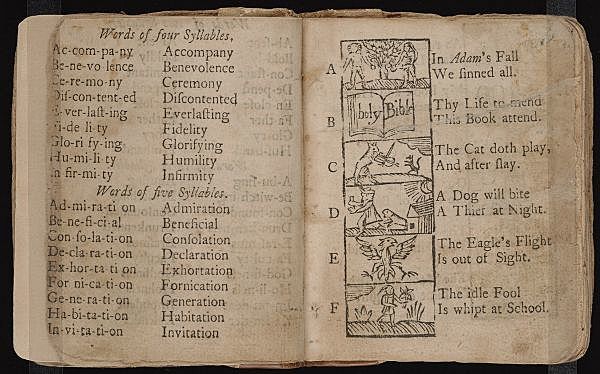 Words of four Syllables.
Ac-com-pa-ny Accompany
Be-ne-vo lence Benevolence
Ce-re-mo-ny Ceremony
Diſ-con-tent-ed Diſcontented
E-ver-laſt-ing Everlaſting
Fi-de li-ty Fidelity
Glo-ri fy-ing Glorifying
Hu-mi-li ty Humility
In fir-mi-ty Infirmity
Words of five Syllables.
Ad-mi-ra-ti on Admiration
Be-ne-fi-ci-al Beneficial
Con-ſo-la-ti-on Conſolation
De-cla-ra-ti-on Declaration
Ex-hor-ta ti on Exhortation
For ni-ca-ti-on Fornication
Ge-ne-ra-ti-on Generation
Ha-bi-ta-ti-on Habitation
In-vi-ta-ti-on Invitation
A
In Adam's Fall
We ſinned all.
B
holy Bible
Thy Life to mend
This Book attend.
C
The Cat doth play,
And after ſlay.
D
A Dog will bite
A Thief at Night.
E
The Eagle's Flight
Is out of Sight.
F
The idle Fool
Is whipt at School.